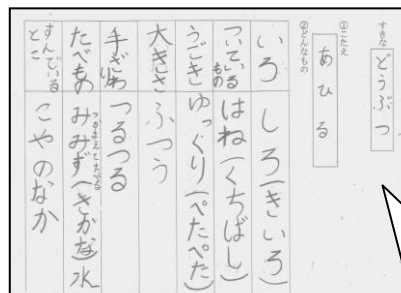 すきな
どうぶつ
①こたえ
あひる
②どんなもの
いろ
しろ(きいろ)
ついている
もの
はね(くちばし)
うごき
ゆっくり(ぺたぺた)
大きさ
ふつう
手ざわり
つるつる
たべもの
つかまえてたべる
みみず(さかな)水
すんでいる
とこ
こやのなか